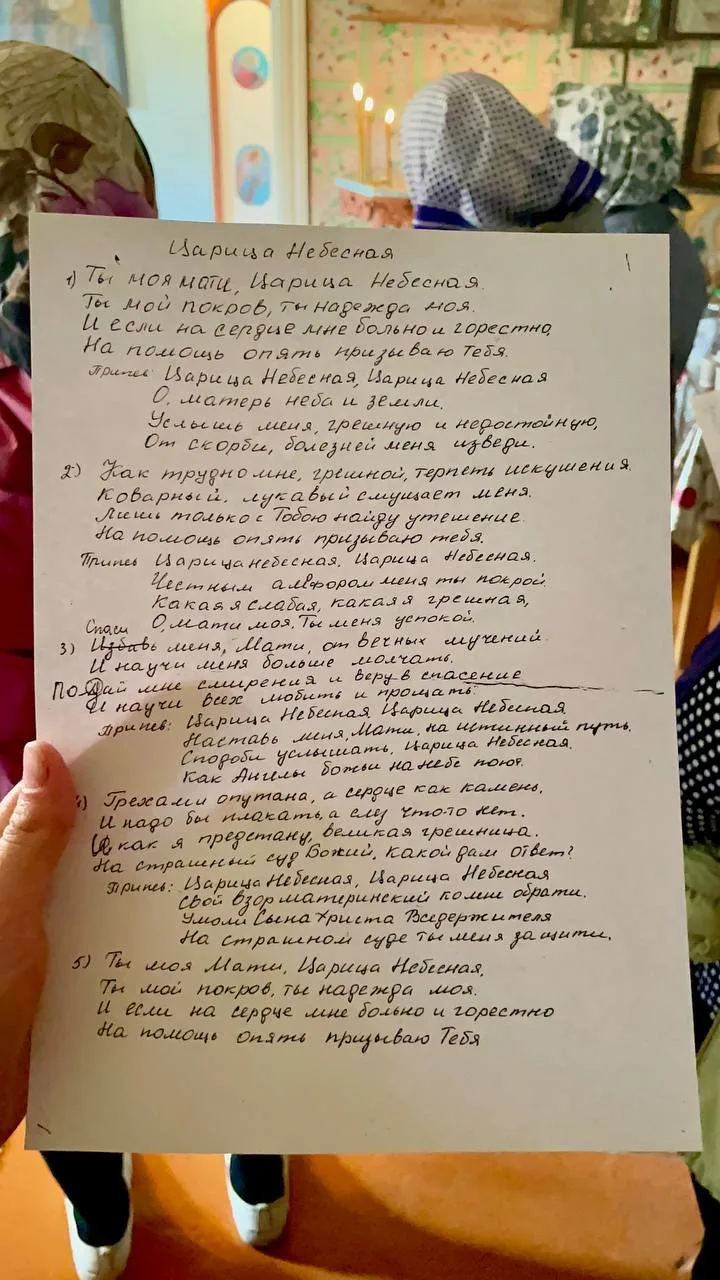 Царица Небесная
1) Ты моя мати, Царица Небесная.
Ты мой покров, ты надежда моя.
И если на сердце мне больно и горестно,
На помощь опять призываю Тебя.
Припев: Царица Небесная, Царица Небесная
О, матерь неба и земли.
Услышь меня, грешную и недостойную,
От скорби, болезней меня изведи.
2) Как трудно мне, грешной, терпеть искушения.
Коварный, лукавый смущает меня.
Лишь только с Тобою найду утешение.
На помощь опять призываю тебя.
Припев Царица небесная. Царица Небесная.
Честным амфором меня ты покрой.
Какая я слабая, какая я грешная,
О, мати моя, Ты меня успокой.
Спаси
3) Избавь меня, Мати, от вечных мучений
И научи меня больше молчать.
Подай мне смирения и веру в спасение
И научи всех любить и прощать.
Припев: Царица Небесная Царица Небесная
Наставь меня, Мати, на истинный путь.
Сподоби услышать, Царица Небесная,
Как Ангелы божьи на небе поют.
4) Грехами опутана, а сердце как камень,
И надо бы плакать, а слез что-то нет.
И как я предстану, великая грешница.
На страшный суд Божий, какой дам ответ?
Припев: Царица Небесная, Царица Небесная
Свой взор материнский ко мне обрати.
Умоли Сына Христа Вседержителя
На страшном суде ты меня защити.
5) Ты моя Мати, Царица Небесная,
Ты мой покров, ты надежда моя.
И если на сердце мне больно и горестно
На помощь опять призываю Тебя